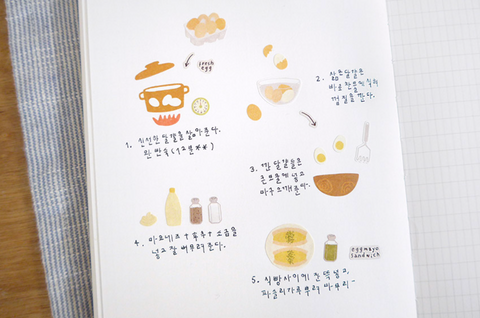 fresh egg
1. 신선한 달걀을 삶아준다.
완 반숙 (12분**)
2. 삶은 달걀은
바로 찬물에 식혀
껍질을 깐다.
3. 깐 달걀들은
볼에 넣고
마구 으깨준다.
4. 마요네즈 + 후추 + 소금을
넣고 잘 버무려준다.
eggmayo
sandwich
5. 식빵 사이에 잔뜩 넣고,
파슬리가루 뿌려 마무리-